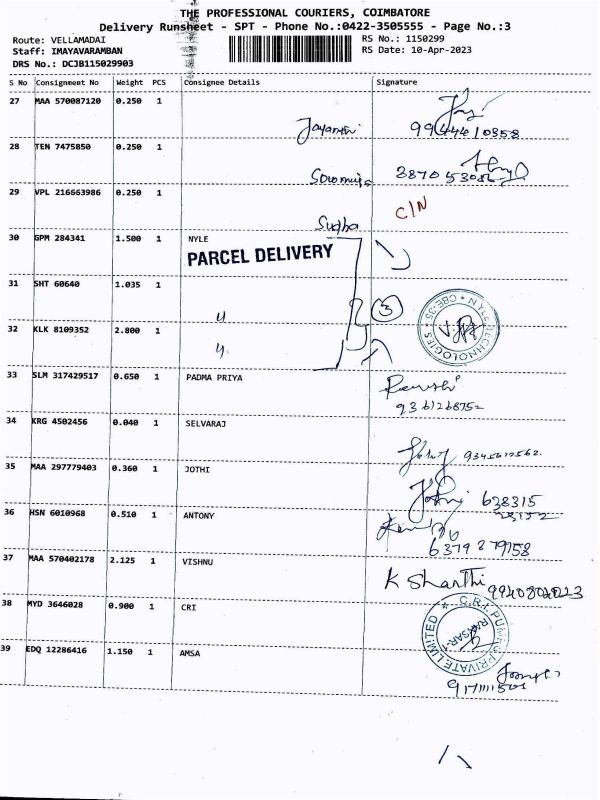 THE PROFESSIONAL COURIERS, COIMBATORE
Delivery Runsheet - SPT - Phone No.:0422-3505555 - Page No.:3
Route: VELLAMADAI
RS No.: 1150299
Staff: IMAYAVARAMBAN
RS Date: 10-Apr-2023
DRS No.: DCJB115029903
S No Consignment No Weight PCS Consignee Details Signature
27 MAA 570087120 0.250 1
Jayanthi
9944410358
28 TEN 7475850 0.250 1
29 VPL 216663986 0.250 1
C/N
Sudha
30 GPM 284341 1.500 1 NYLE
PARCEL DELIVERY
31 SHT 60640 1.035 1
3
NYLE TECHNOLOGIES * CBE-35 *
32 KLK 8109352 2.800 1
33 SLM 317429517 0.650 1 PADMA PRIYA
9361268752
34 KRG 4502456 0.040 1 SELVARAJ
35 MAA 297779403 0.360 1 JOTHI
638315
36 HSN 6010968 0.510 1 ANTONY
6379279158
37 MAA 570402178 2.125 1 VISHNU
K Sharthi
38 MYD 3646028 0.900 1 CRI
C.R.I. PUMPS PRIVATE LIMITED
39 EDQ 12286416 1.150 1 AMSA